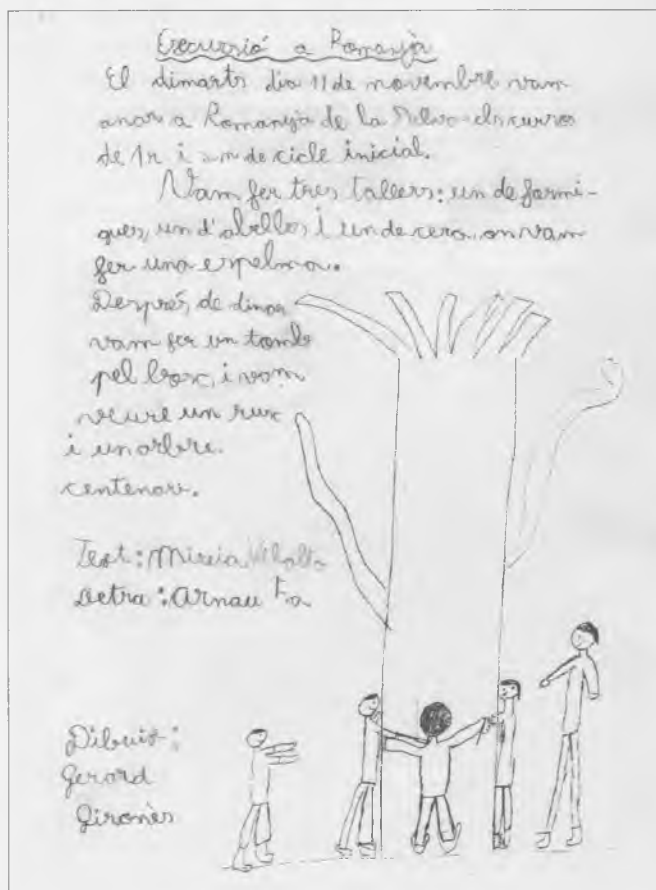 Excurssió a Romanyà
El dimarts dia 11 de novembre vam
anar a Romanyà de la Selva els cursos
de 1r i 2n de cicle inicial.
Vam fer tres tallers: un de formi-
gues, un d'abelles i un de cera, on vam
fer una espelma.
Després de dinar
vam fer un tomb
pel bosc, i vam
veure un ruc
i un arbre
centenari.
Text: Mireia Vilalta
Lletra: Arnau
Dibuix:
Gerard
Gironès